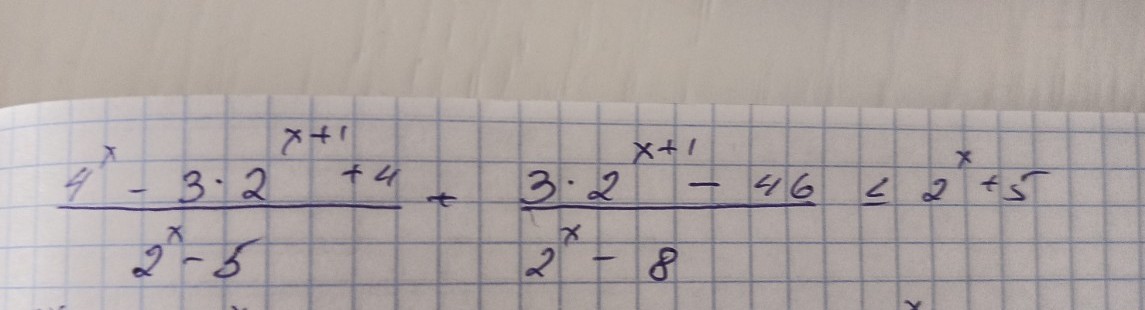 4^x - 3·2^(x+1) + 4 / 2^x - 5 + 3·2^(x+1) - 46 / 2^x - 8 ≤ 2^x + 5